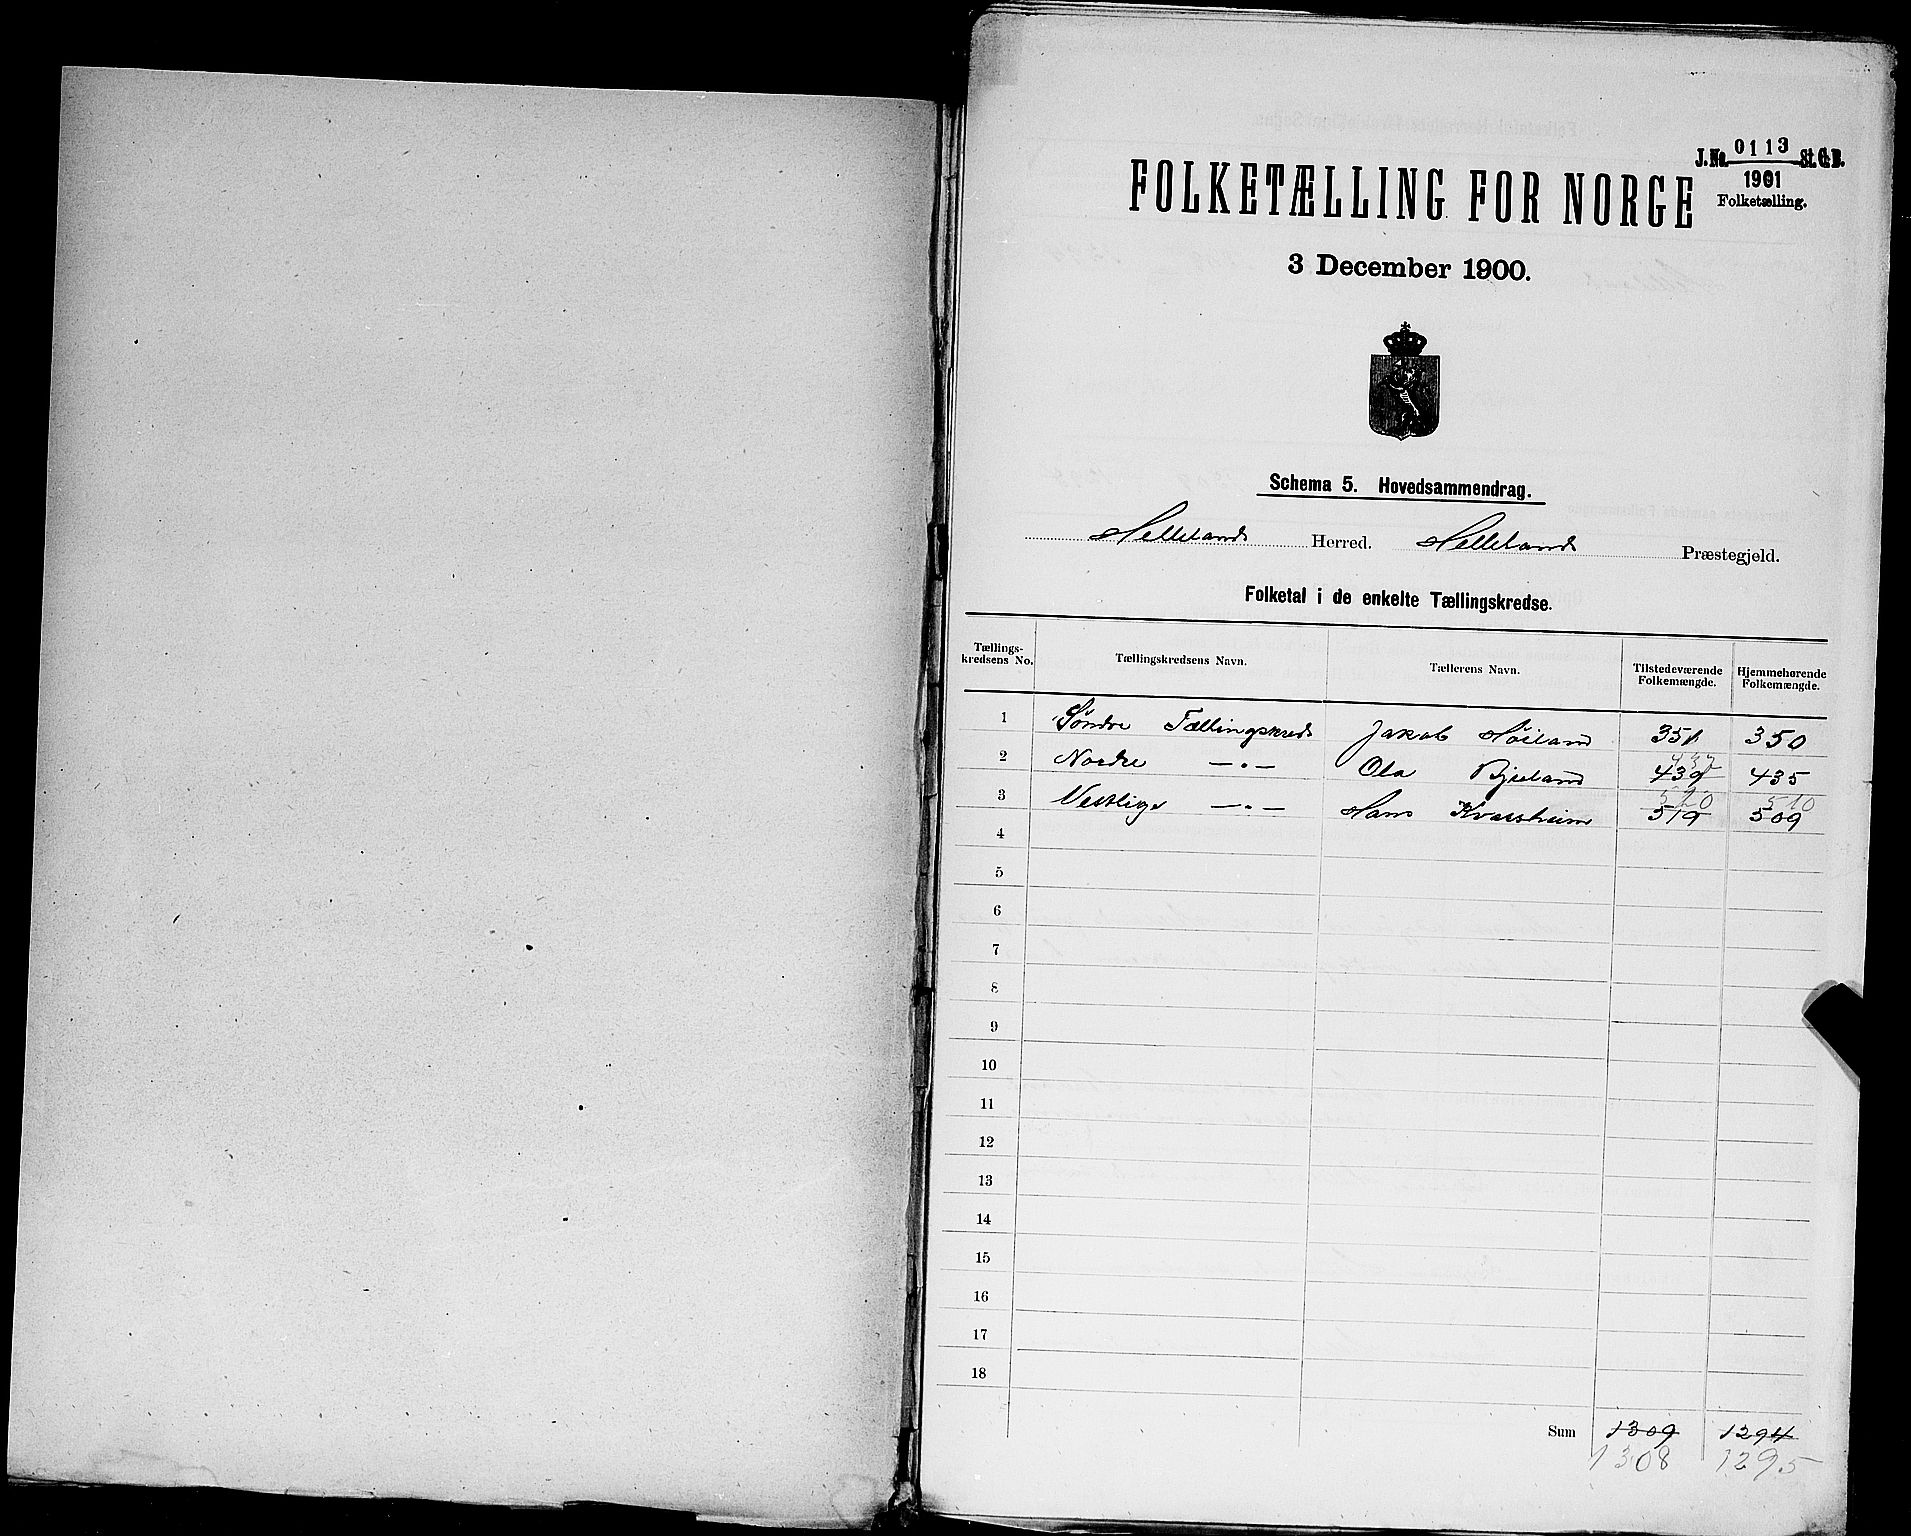 J. No. 0113 St. C. B.
1901
Folketælling.
FOLKETÆLLING FOR NORGE
3 December 1900.
Schema 5. Hovedsammendrag.
Helleland Herred. Helleland Præstegjeld.
Folketal i de enkelte Tællingskredse.
Tællings-kredsens No. Tællingskredsens Navn. Tællerens Navn. Tilstedeværende Folkemængde. Hjemmehørende Folkemængde.
1 Søndre Tællingskreds Jakob Høiland 351 350
437
2 Nordre —„— Ola Bjuland 439 435
520 510
3 Vestlige —„— Hans Kvassheim 519 509
4
5
6
7
8
9
10
11
12
13
14
15
16
17
18
Sum 1309 1294
1308 1295